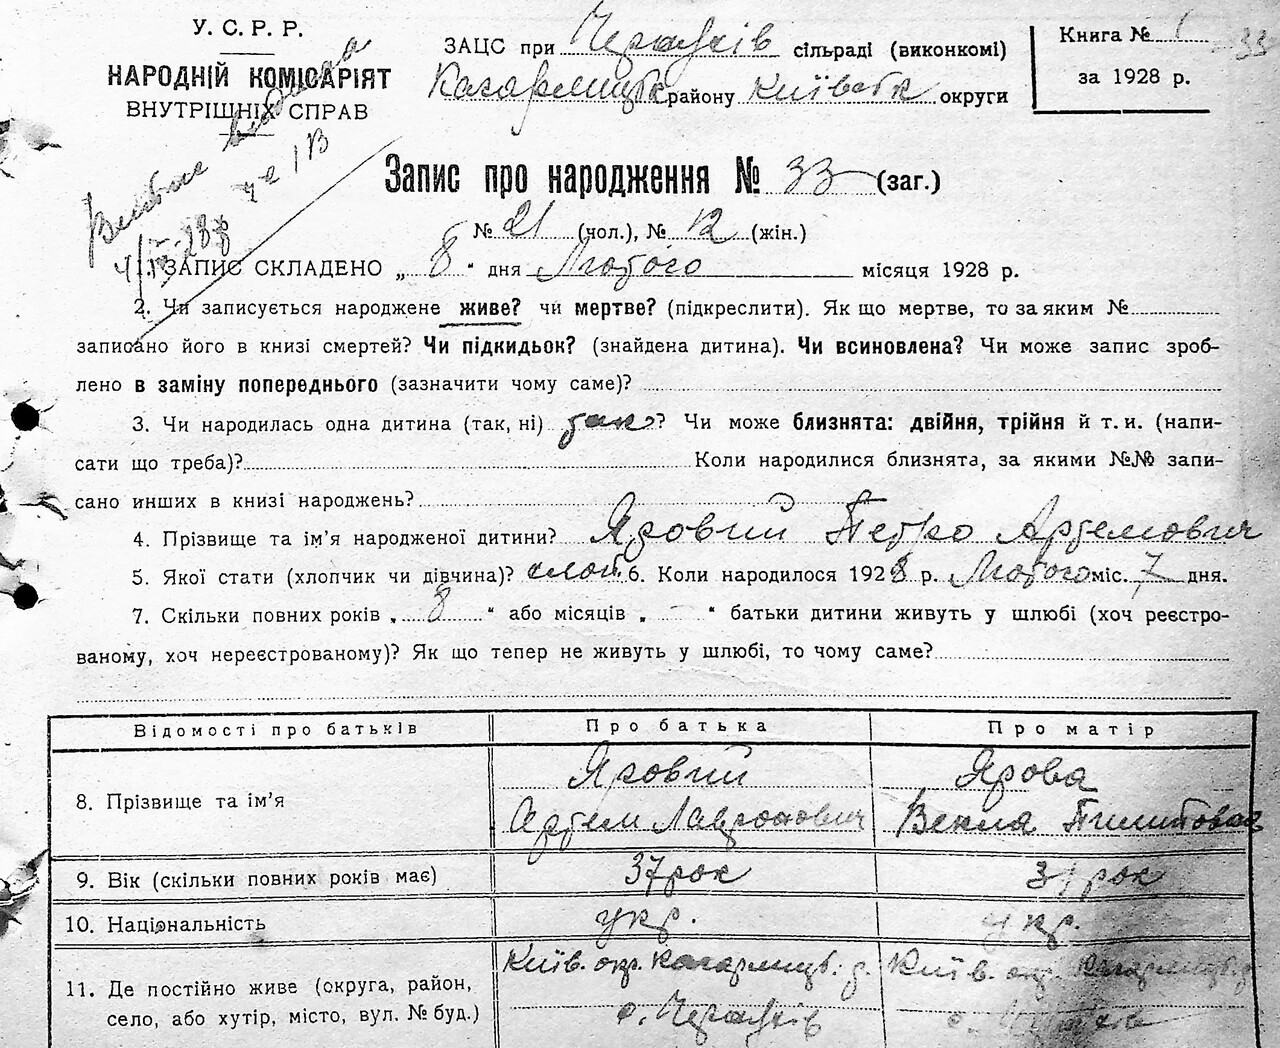 У. С. Р. Р.
НАРОДНІЙ КОМІСАРІЯТ
ВНУТРІШНІХ СПРАВ
ЗАЦС при Черняхів сільраді (виконкомі)
Кагарлицьк району Київськ округи
Книга № 1
за 1928 р.
33
Запис про народження № 33 (заг.)
№ 21 (чол.), № 12 (жін.)
1. ЗАПИС СКЛАДЕНО „ 8 “ дня Лютого місяця 1928 р.
2. Чи записується народжене живе? чи мертве? (підкреслити). Як що мертве, то за яким №
записано його в книзі смертей? Чи підкидьок? (знайдена дитина). Чи всиновлена? Чи може запис зроб-
лено в заміну попереднього (зазначити чому саме)?
3. Чи народилась одна дитина (так, ні) так ? Чи може близнята: двійня, трійня й т. и. (напи-
сати що треба)? Коли народилися близнята, за якими №№ запи-
сано инших в книзі народжень?
4. Прізвище та ім’я народженої дитини? Яровий Петро Артемович
5. Якої стати (хлопчик чи дівчина)? 6. Коли народилося 1928 р. Лютого міс. 7 дня.
7. Скільки повних років „ 8 “ або місяців „ - “ батьки дитини живуть у шлюбі (хоч реєстро-
ваному, хоч нереєстрованому)? Як що тепер не живуть у шлюбі, то чому саме?
Відомості про батьків Про батька Про матір
8. Прізвище та ім’я Яровий Артем Лавронович Ярова Векла Пилиповна
9. Вік (скільки повних років має) 37 рок 31 рок
10. Національність укр. укр.
11. Де постійно живе (округа, район,
село, або хутір, місто, вул. № буд.)
Київ. окр. Кагарлицьк. р. Київ. окр. Кагарлицьк. р.
с. Черняхів с. Черняхів